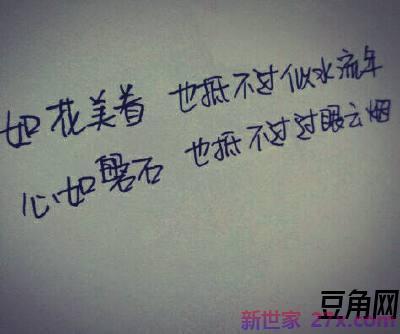 如花美眷 也抵不过似水流年
心如磐石 也抵不过过眼云烟
豆角网
新世家 27x.com